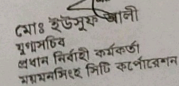 মোঃ ইউসুফ আলী
যুগ্মসচিব
প্রধান নির্বাহী কর্মকর্তা
ময়মনসিংহ সিটি কর্পোরেশন